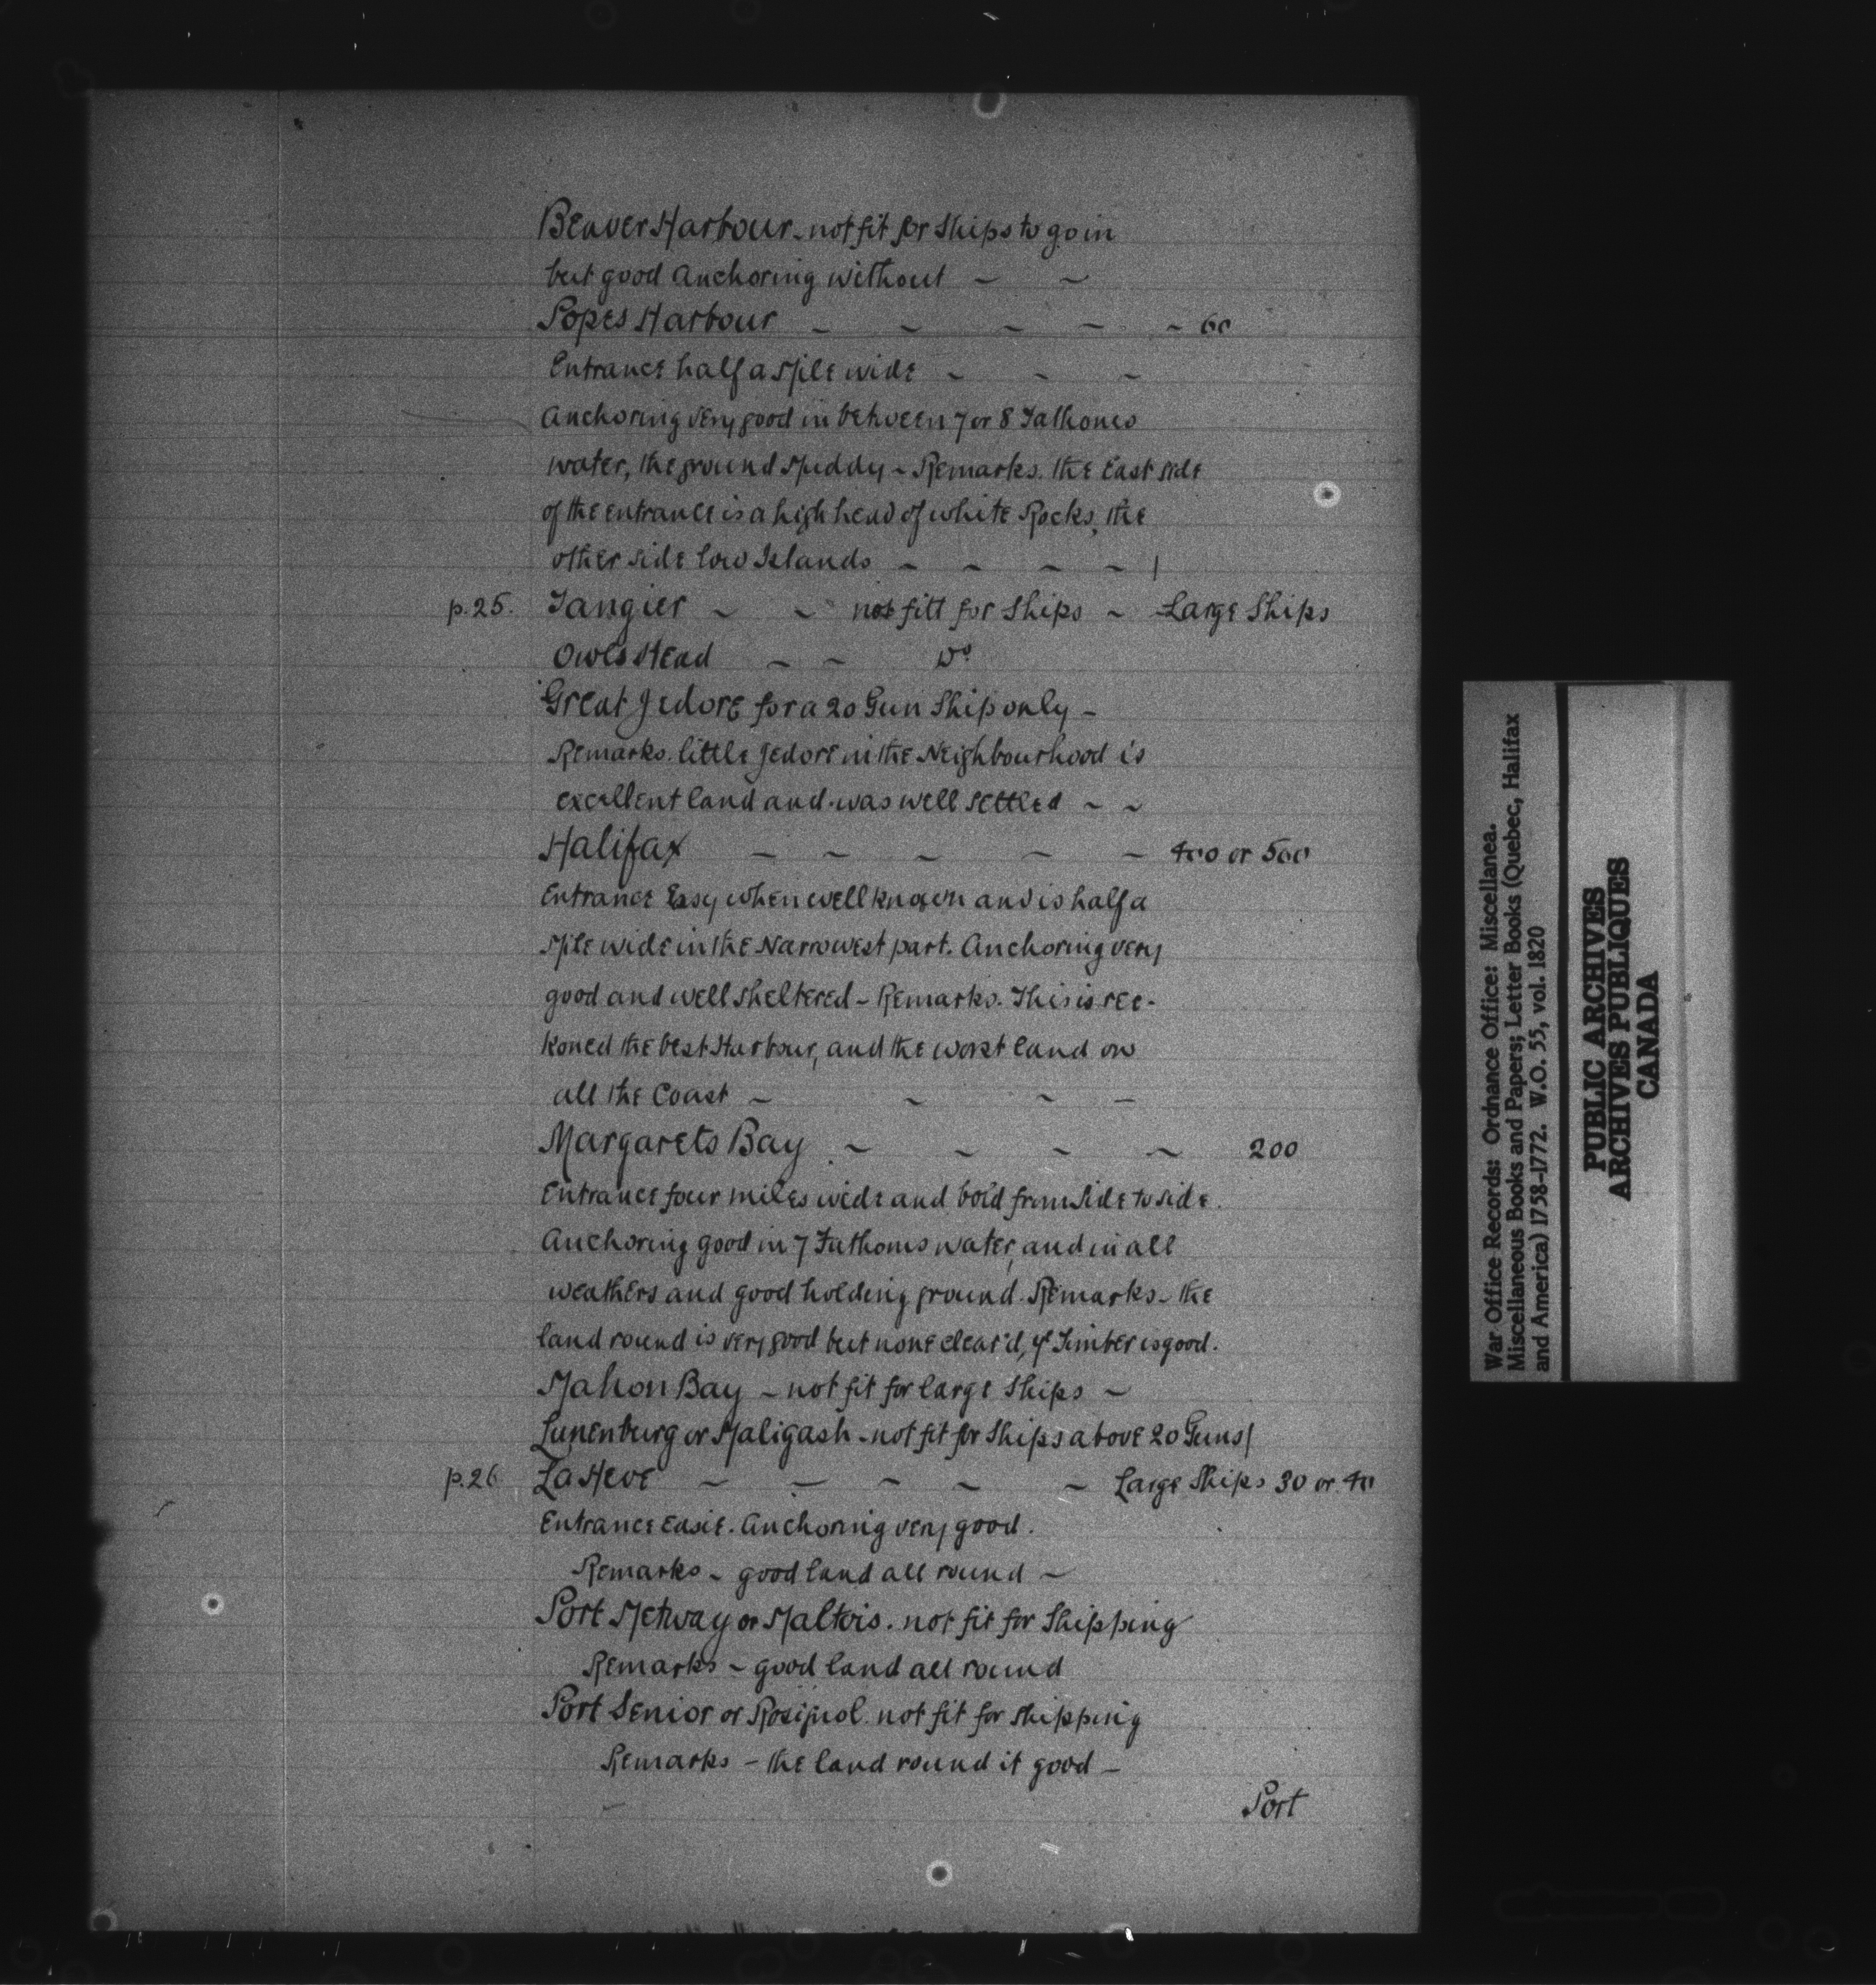 Beaver Harbour - not fit for Ships to go in
but good Anchoring without ~ ~
Popes Harbour ~ ~ ~ ~ ~ 60
Entrance half a Mile wide ~ ~ ~
Anchoring very good in between 7 or 8 Fathoms
water, the ground Muddy ~ Remarks. the East side
of the entrance is a high head of white Rocks, the
other side low Islands ~ ~ ~ ~ |
p.25. Tangier ~ ~ not fitt for Ships ~ Large Ships
Owls Head ~ ~ Do
Great Jedore for a 20 Gun Ship only -
Remarks. little Jedore in the Neighbourhood is
excellent land and was well settled ~ ~
Halifax ~ ~ ~ ~ ~ 400 or 500
Entrance Easy when well known and is half a
Mile wide in the Narrowest part. Anchoring very
good and well sheltered - Remarks. This is rec-
koned the best Harbour, and the worst land on
all the Coast ~ ~ ~ ~
Margarets Bay ~ ~ ~ ~ 200
Entrance four miles wide and bold from Side to side.
Anchoring good in 7 Fathoms water, and in all
weathers and good holding ground. Remarks - the
land round is very good but none clear'd, ye Timber is good.
Mahon Bay ~ not fit for large Ships ~
Lunenburg or Maligash - not fit for Ships above 20 Guns|
p.26 La Heve ~ ~ ~ ~ ~ Large Ships 30 or 40
Entrance Easie. Anchoring very good.
Remarks ~ good land all round ~
Port Metway or Maltois. not fit for Shipping
Remarks ~ good land all round
Port Senior or Rosignol. not fit for shipping
Remarks - the land round it good -
Port
War Office Records: Ordnance Office: Miscellanea.
Miscellaneous Books and Papers; Letter Books (Quebec, Halifax
and America) 1758-1772. W.O. 55, vol. 1820
PUBLIC ARCHIVES
ARCHIVES PUBLIQUES
CANADA